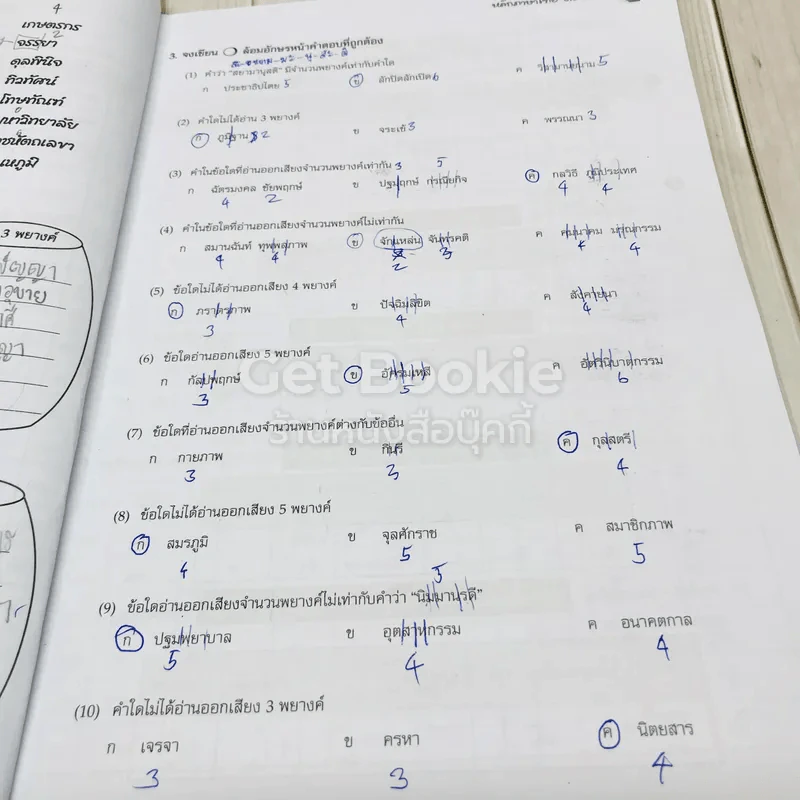 4
เกษตรกร
2
จรรยา
ดุลพินิจ
ทิวทัศน์
โทษทัณฑ์
3 พยางค์
3. จงเขียน ◯ ล้อมอักษรหน้าคำตอบที่ถูกต้อง
(1) คำว่า “สยามานุสติ” มีจำนวนพยางค์เท่ากับคำใด
ก ประชาธิปไตย 5 ข สักปิดสักเปิด 6 ค 5
(2) คำใดไม่ได้อ่าน 3 พยางค์
ก ภูมิฐาน 2 ข จระเข้ 3 ค พรรณนา 3
(3) คำในข้อใดที่อ่านออกเสียงจำนวนพยางค์เท่ากัน 3 5
ก ฉัตรมงคล ชัยพฤกษ์ ข ปฐมฤกษ์ ค กลวิธี ภูมิประเทศ
4 2 4 4
(4) คำในข้อใดที่อ่านออกเสียงจำนวนพยางค์ไม่เท่ากัน
ก สมานฉันท์ ทุพพลภาพ ข จักแหล่น จันทรคติ ค คมนาคม วรรณกรรม
4 4 2 3 4 4
(5) ข้อใดไม่ได้อ่านออกเสียง 4 พยางค์
ก ภราดรภาพ ข ปัจฉิมลิขิต ค สังคายนา
3 4 4
(6) ข้อใดอ่านออกเสียง 5 พยางค์
ก กัลปพฤกษ์ ข อัครมเหสี ค อัตวินิบาตกรรม
3 5 6
Get Bookie
ร้านหนังสือบุ๊คกี้
(7) ข้อใดที่อ่านออกเสียงจำนวนพยางค์ต่างกับข้ออื่น
ก กายภาพ ข กินรี ค กุลสตรี
3 3 4
(8) ข้อใดไม่ได้อ่านออกเสียง 5 พยางค์
ก สมรภูมิ ข จุลศักราช ค สมาชิกภาพ
4 5 5
5
(9) ข้อใดอ่านออกเสียงจำนวนพยางค์ไม่เท่ากับคำว่า “นิมมานรดี”
ก ปฐมพยาบาล ข อุตสาหกรรม ค อนาคตกาล
5 4 4
(10) คำใดไม่ได้อ่านออกเสียง 3 พยางค์
ก เจรจา ข ครหา ค นิตยสาร
3 3 4